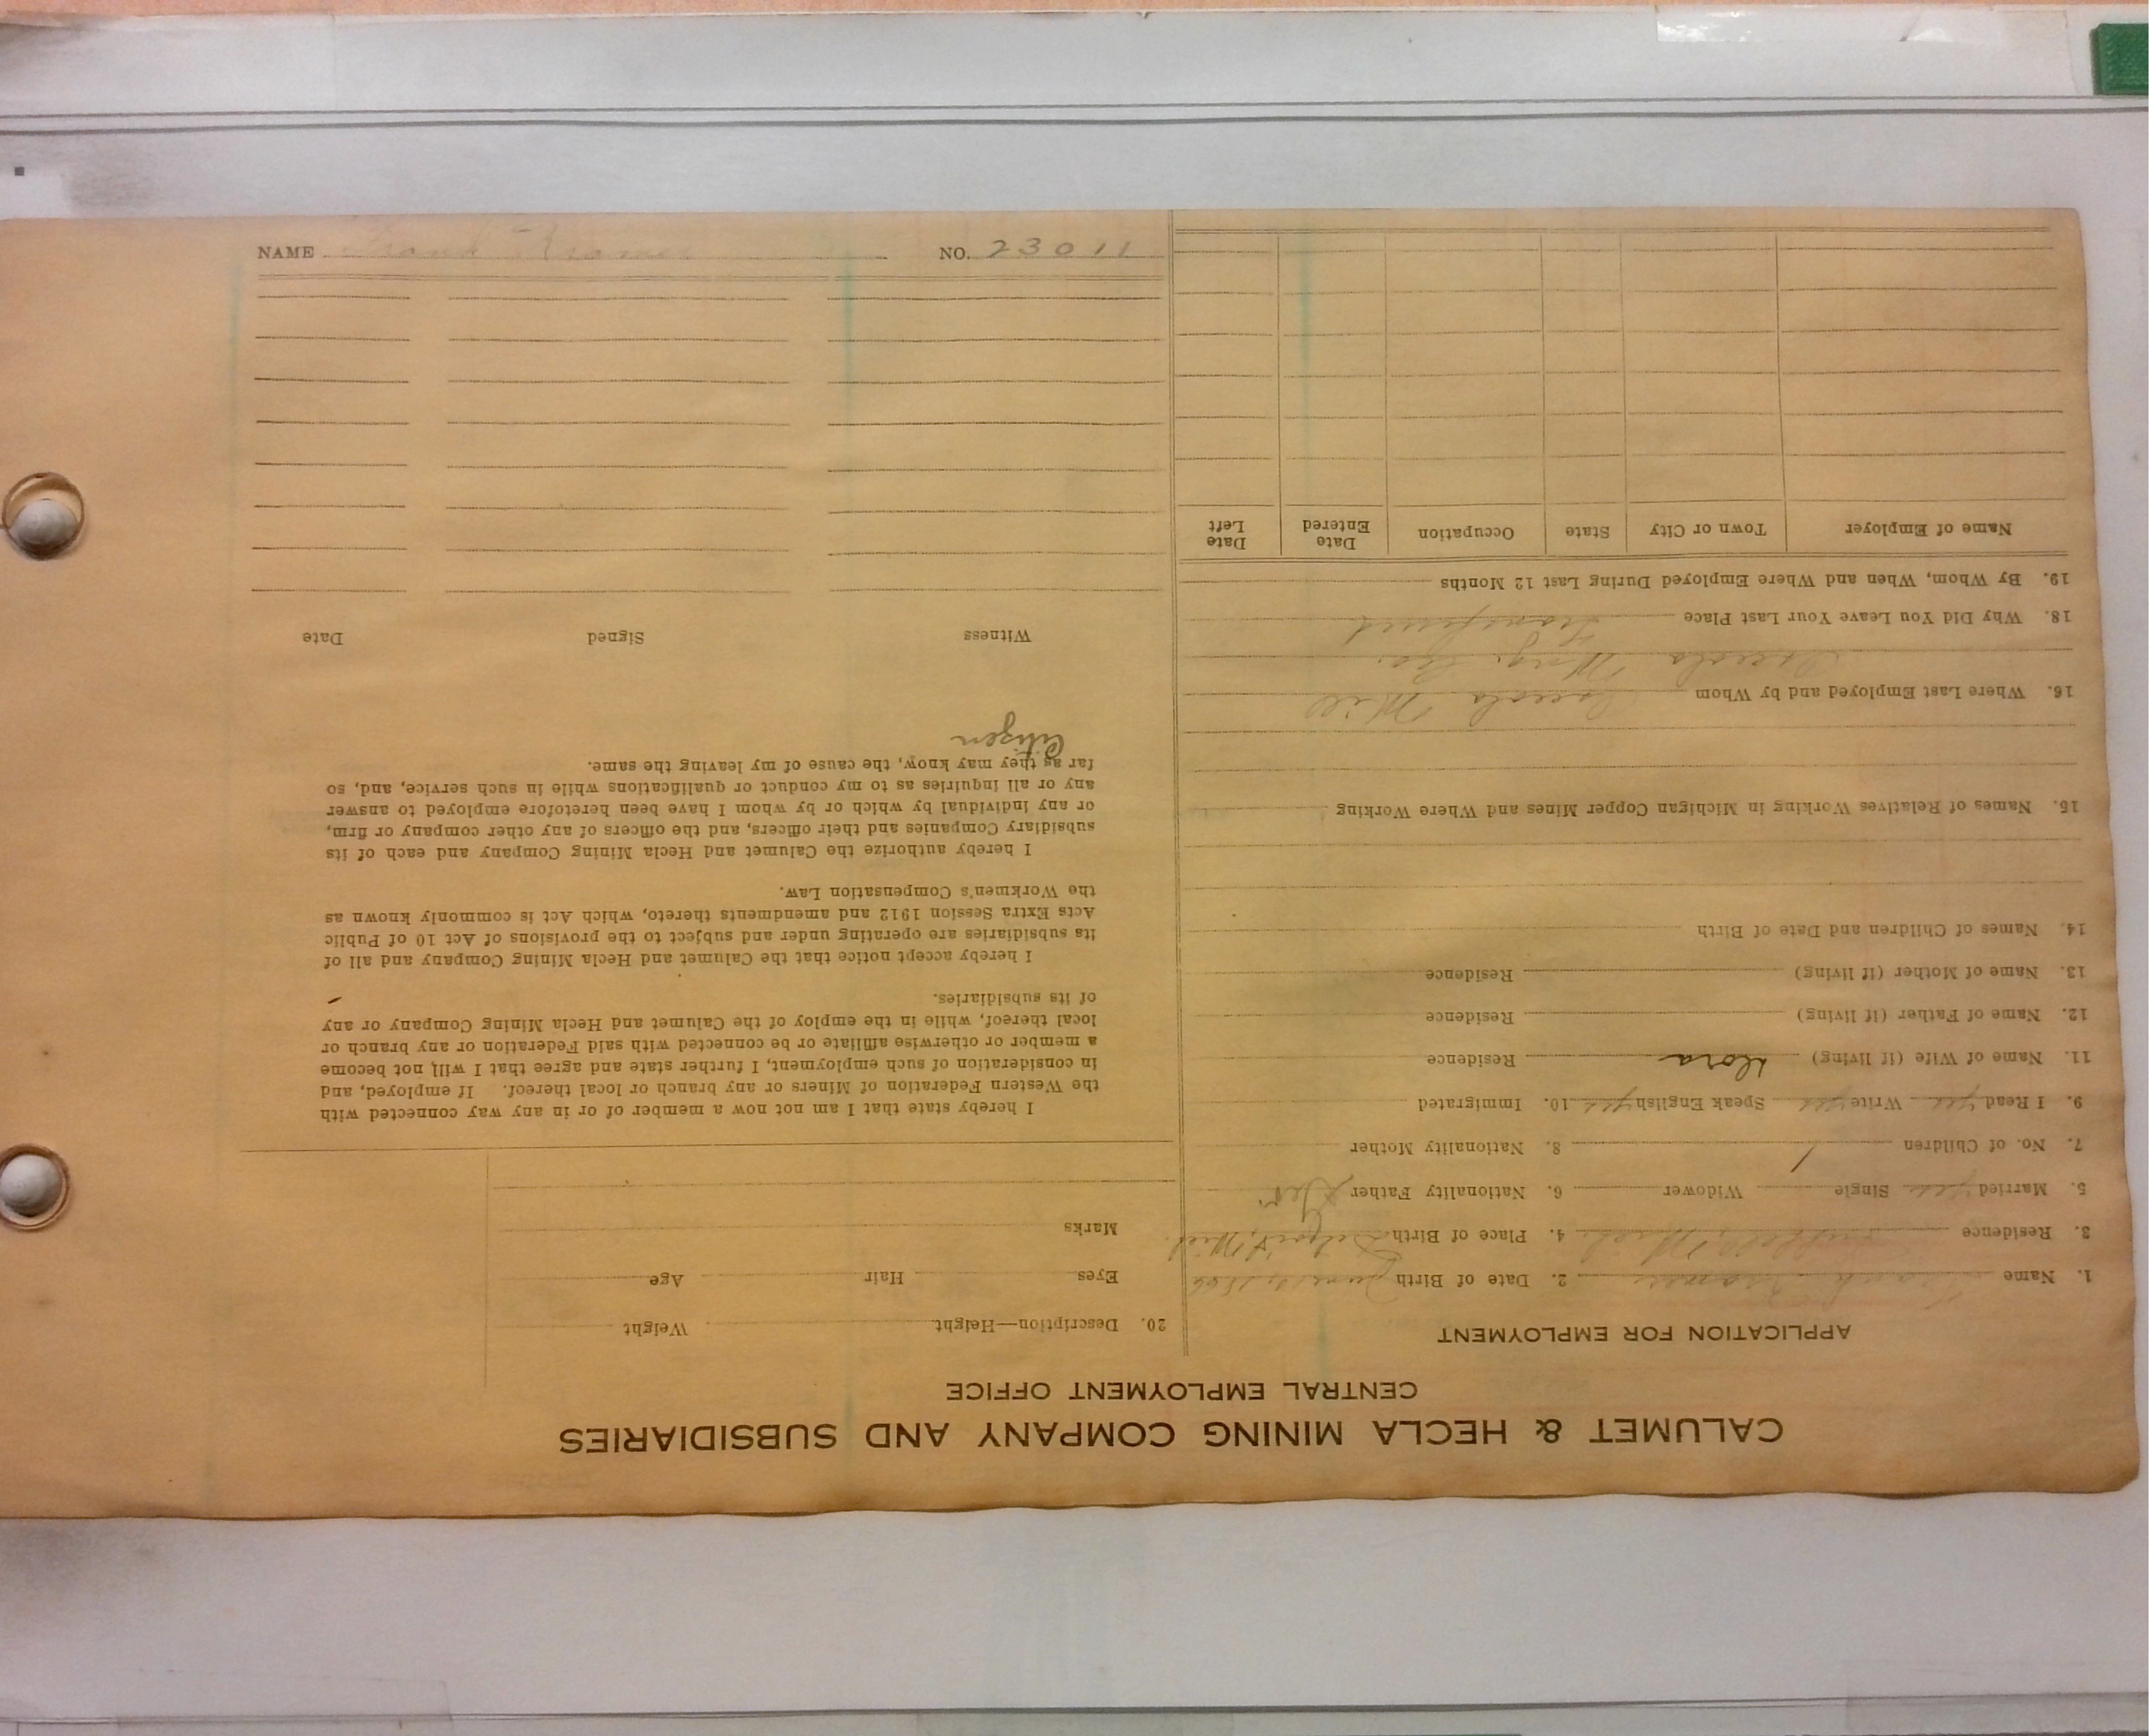 CALUMET & HECLA MINING COMPANY AND SUBSIDIARIES
CENTRAL EMPLOYMENT OFFICE
APPLICATION FOR EMPLOYMENT
1. Name Frank 2. Date of Birth June 1866
3. Residence Mich. 4. Place of Birth Mich.
5. Married yes Single Widower 6. Nationality Father Ger.
7. No. of Children 1 8. Nationality Mother
9. I Read yes Write yes Speak English yes 10. Immigrated
11. Name of Wife (if living) Dora Residence
12. Name of Father (if living) Residence
13. Name of Mother (if living) Residence
14. Names of Children and Date of Birth
15. Names of Relatives Working in Michigan Copper Mines and Where Working
16. Where Last Employed and by Whom Osceola Mill
Osceola Mng. Co.
18. Why Did You Leave Your Last Place Transferred
19. By Whom, When and Where Employed During Last 12 Months
Name of Employer Town or City State Occupation Date Entered Date Left
20. Description—Height Weight
Eyes Hair Age
Marks
I hereby state that I am not now a member of or in any way connected with
the Western Federation of Miners or any branch or local thereof. If employed, and
in consideration of such employment, I further state and agree that I will not become
a member or otherwise affiliate or be connected with said Federation or any branch or
local thereof, while in the employ of the Calumet and Hecla Mining Company or any
of its subsidiaries.
I hereby accept notice that the Calumet and Hecla Mining Company and all of
its subsidiaries are operating under and subject to the provisions of Act 10 of Public
Acts Extra Session 1912 and amendments thereto, which Act is commonly known as
the Workmen's Compensation Law.
I hereby authorize the Calumet and Hecla Mining Company and each of its
subsidiary Companies and their officers, and the officers of any other company or firm,
or any individual by which or by whom I have been heretofore employed to answer
any or all inquiries as to my conduct or qualifications while in such service, and, so
far as they may know, the cause of my leaving the same.
Citizen
Witness Signed Date
NAME Frank Kramer NO. 23011